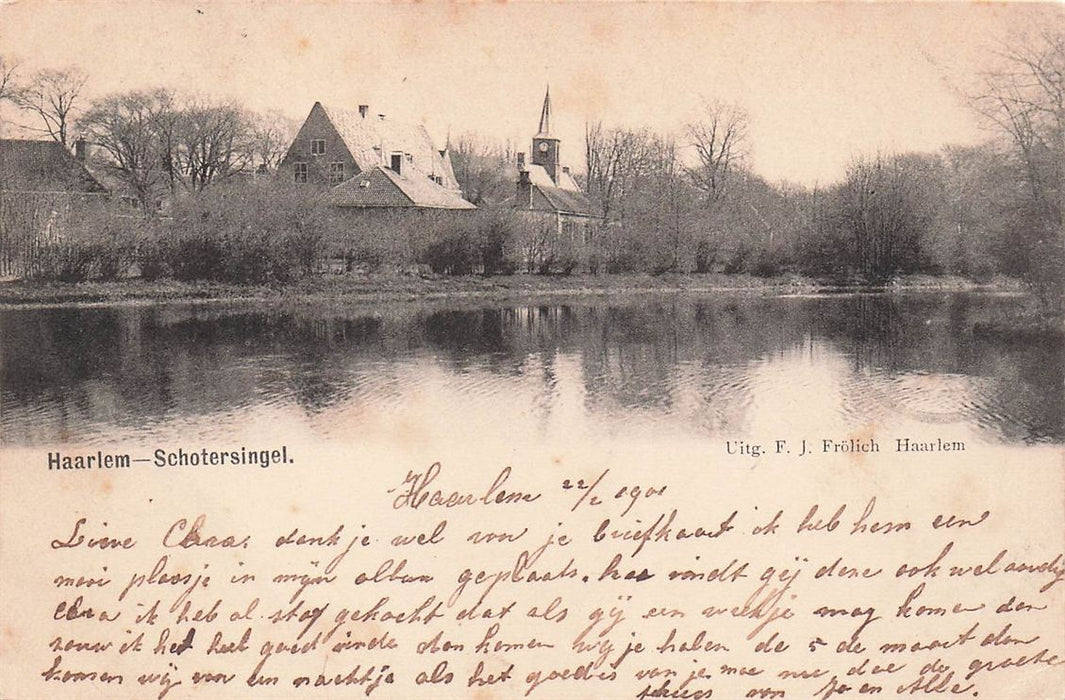 Haarlem—Schotersingel.
Uitg. F. J. Frölich Haarlem
Haarlem 22/2 1901
Lieve Clara, dank je wel voor je briefkaart ik heb hem een
mooi plaasje in mijn album geplaats. hoe vindt gij deze ook wel aardig
Clara ik heb al stof gekocht dat als gij een weekje mag komen dan
zouw ik het heel goed vinde dan komen wij je halen de 5 de maart dan
komen wij voor een nachtje als het goed is van je moe nu doe de groete
kusjes van Jo en Alle.